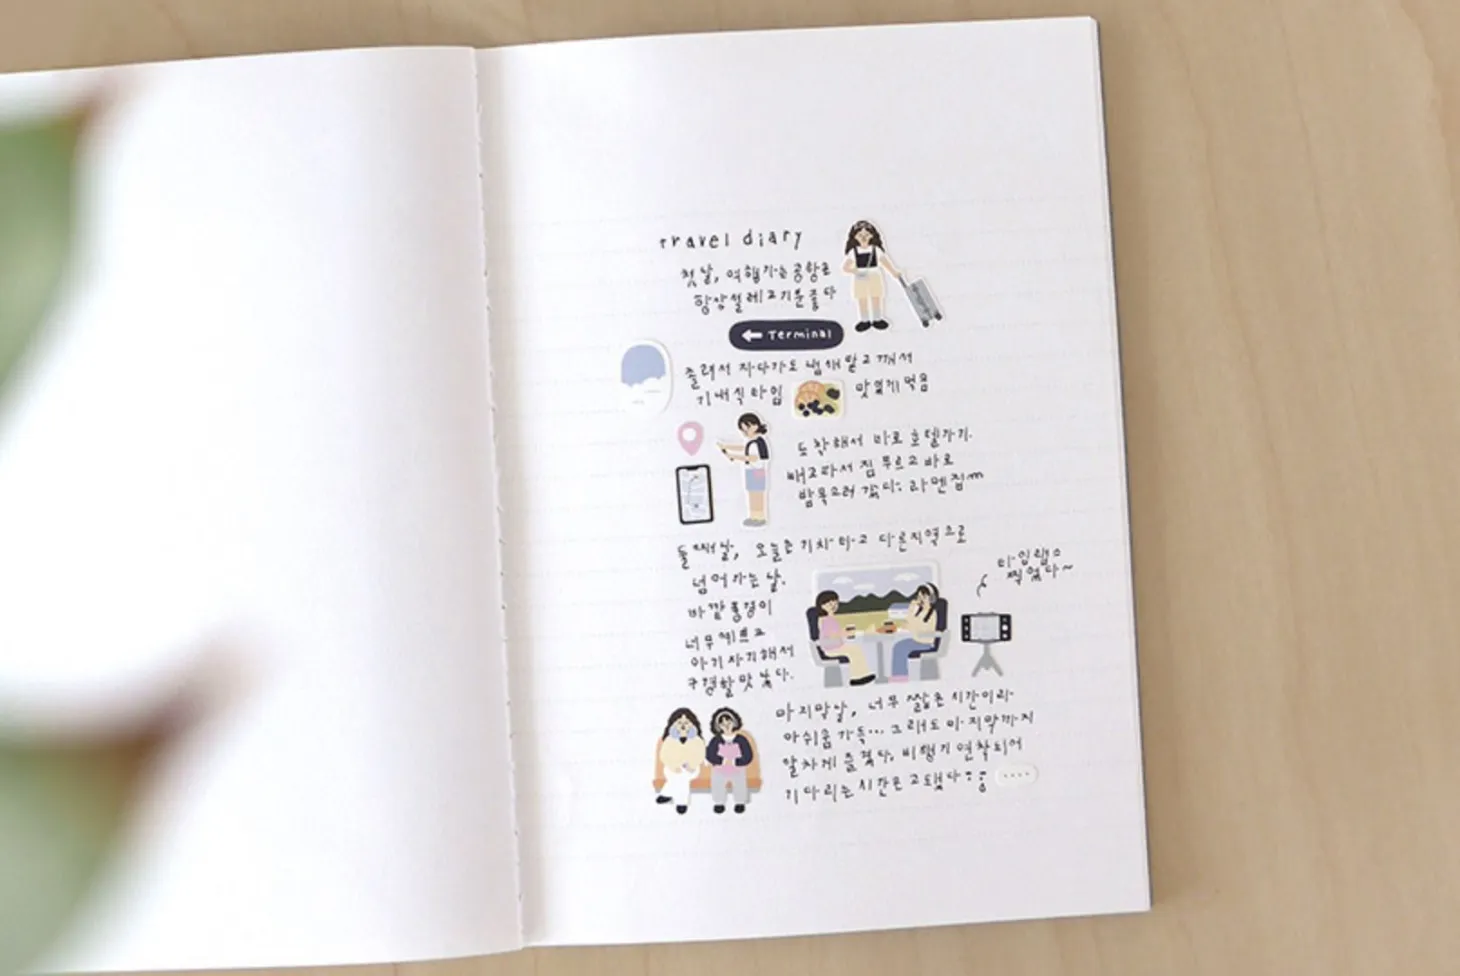 travel diary
첫날, 여행가는 공항은
항상 설레고 기분 좋다
← Terminal
졸려서 자다가도 냄새 맡고 깨서
기내식 타임 맛있게 먹음
도착해서 바로 호텔가기.
배고파서 짐 푸르고 바로
밥 먹으러 갔다: 라멘집m
둘째날, 오늘은 기차타고 다른지역으로
넘어가는 날.
타임랩스
찍었다~
바깥 풍경이
너무 예쁘고
아기자기해서
구경할 맛 났다.
마지막날, 너무 짧은 시간이라
아쉬움 가득... 그래도 마지막까지
알차게 즐겼다, 비행기 연착되어
기다리는 시간은 고됐다 ::
....